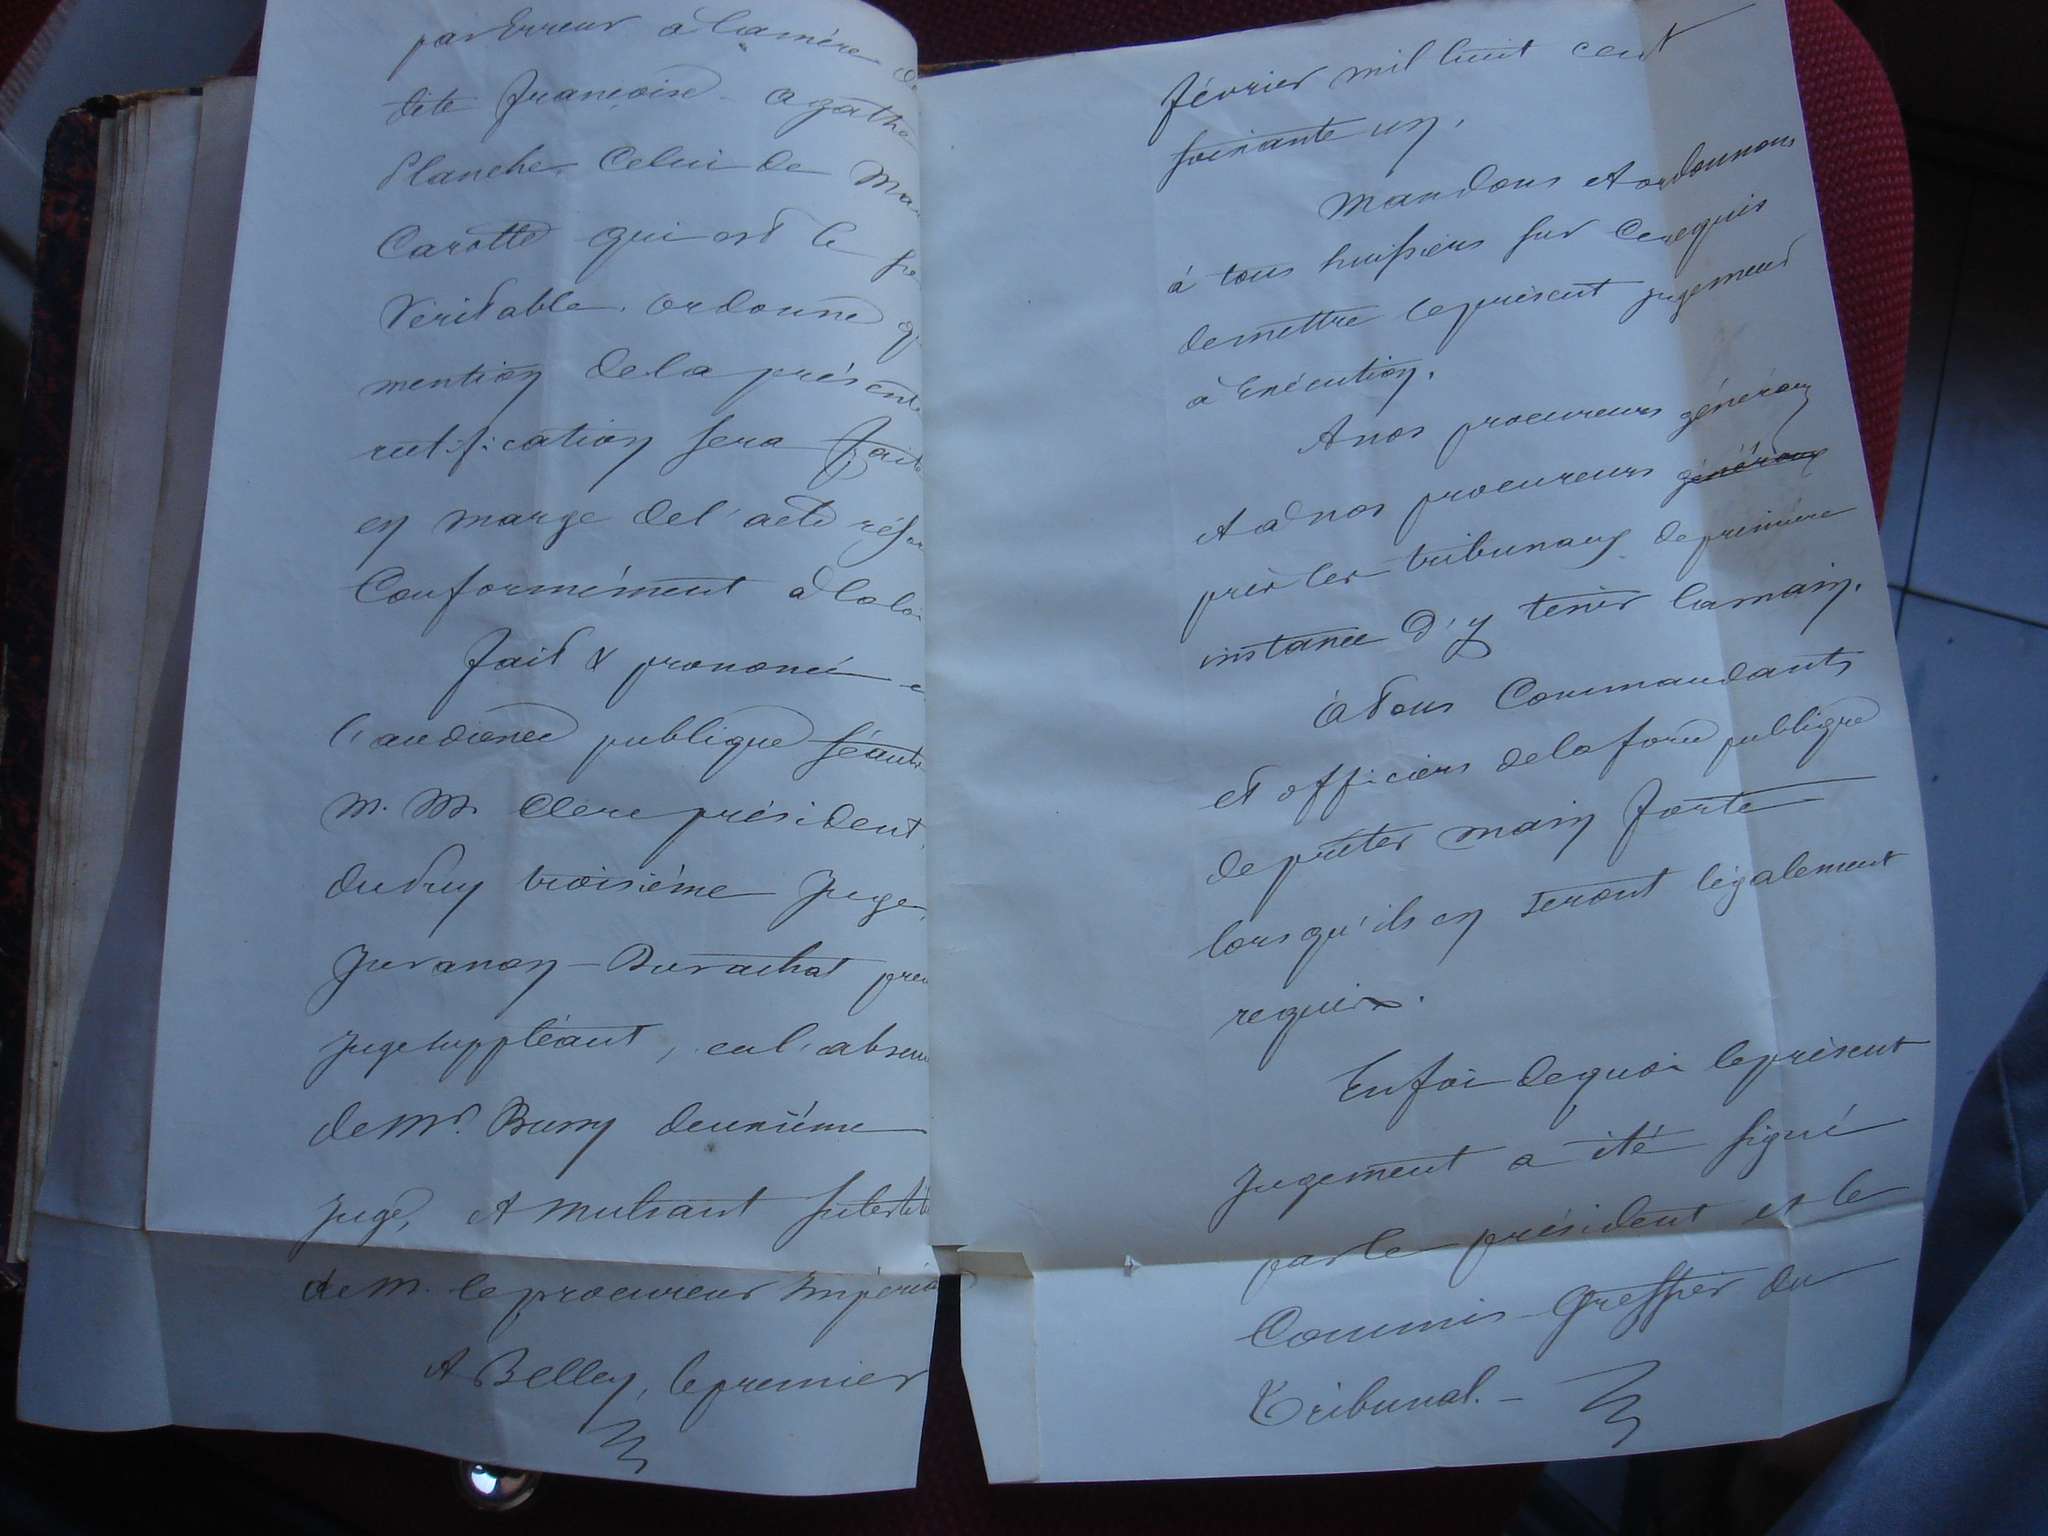 par Erreur à la mère de
dite françoise agathe
Planche, Celui de
Carotte qui est le
Véritable. ordonne
mention de la présente
rectification sera faite
en marge de l'acte
Conformément à la loi
fait & prononcé
l'audience publique séante
M. M. Clerc président,
troisième Juge,
Juvanon-Durachat
Juge suppléant, en l'absence
de Mr. deuxième
Juge, et substitut
de M. le procureur Impérial
A Belley, le premier
février mil huit cent
soixante un,
Mandons et ordonnons
à tous huissiers sur ce requis
de mettre le présent jugement
à Exécution.
A nos procureurs généraux
et à nos procureurs généraux
près les tribunaux de première
instance d'y tenir la main.
à Tous Commandants
et officiers de la force publique
de prêter main forte
lorsqu'ils en seront légalement
requis.
En foi de quoi le présent
Jugement a été signé
par le président et le
Commis-Greffier du
Tribunal. -